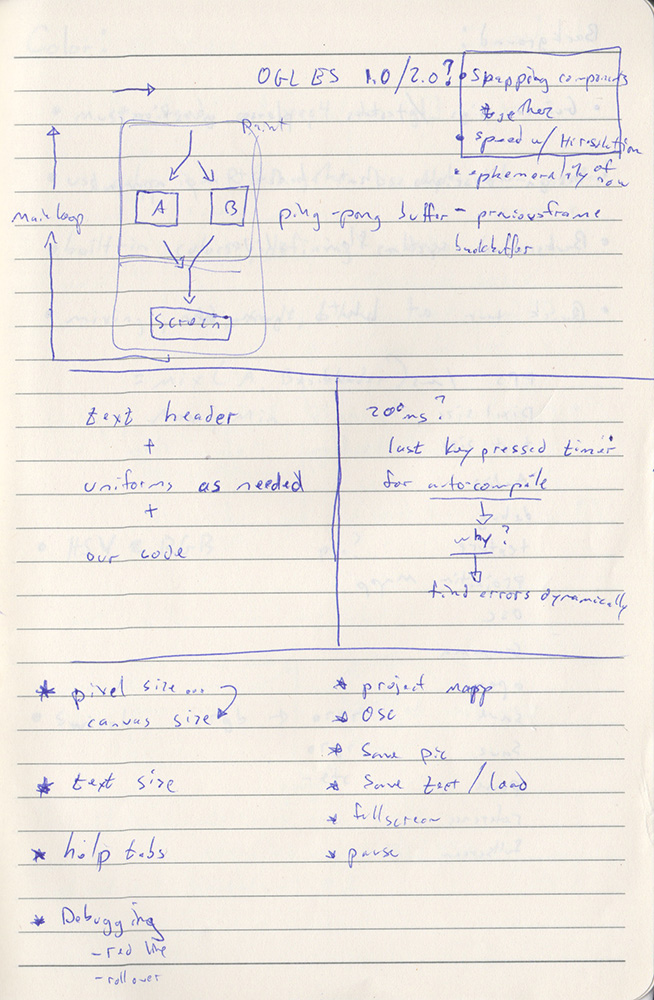 OGL ES 1.0/2.0?
• Snapping components
together
• speed w/ Hi resolution
• ephemerality of now
Paint
main loop
A B
ping-pong buffer - previous frame
backbuffer
Screen
text header
+
uniforms as needed
+
our code
200ms?
last key pressed timer
for auto-compile
why?
find errors dynamically
* pixel size...
canvas size
* text size
* help tabs
* Debugging
- red line
- roll over
* project mapp
* OSC
* Save pic
* Save text/load
* fullscreen
* pause